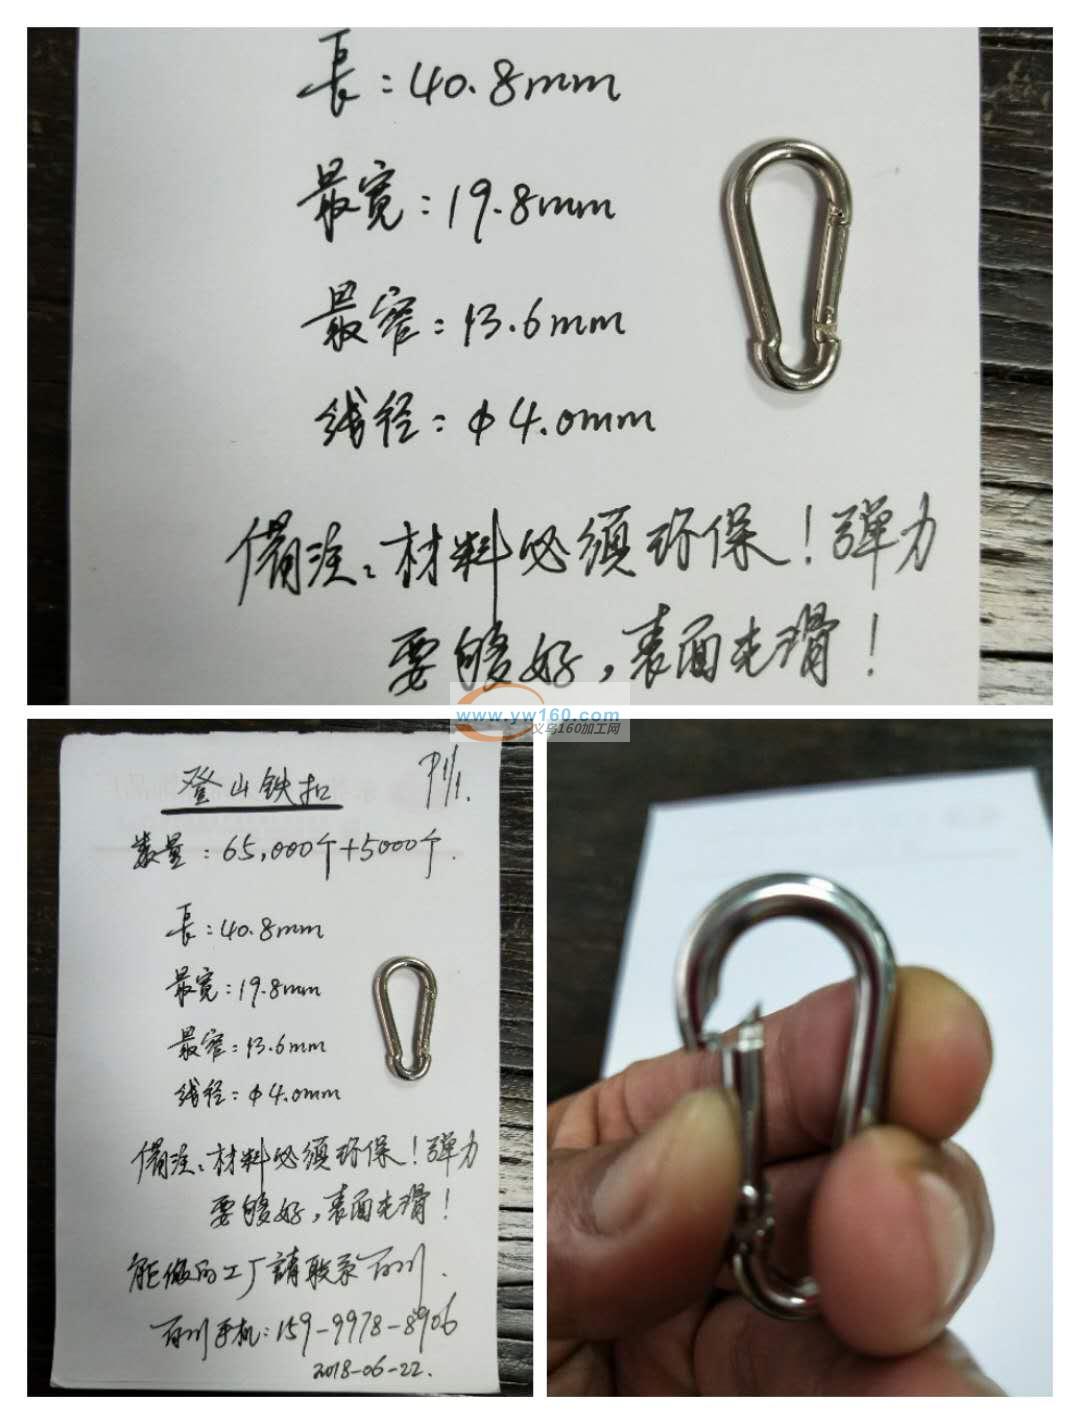 長:40.8mm
最宽:19.8mm
最窄:13.6mm
线径:φ4.0mm
備注:材料必须环保!弹力
要够好,表面光滑!
www.yw160.com
义乌160加工网
P1/1.
登山铁扣
数量:65,000个+5000个.
長:40.8mm
最宽:19.8mm
最窄:13.6mm
线径:φ4.0mm
備注:材料必须环保!弹力
要够好,表面光滑!
能做的工厂請联系百川.
百川手机:159-9978-8906
2018-06-22.